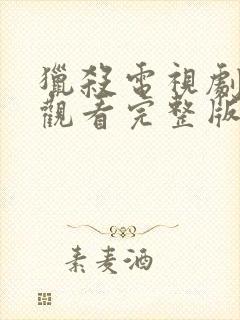 獵殺電視劇
觀看完整版
素麦酒